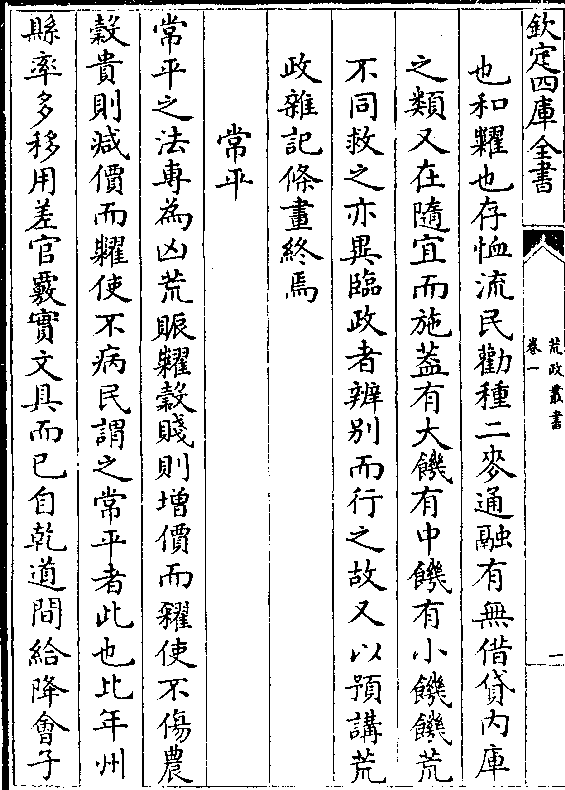 欽定四庫全書
荒政叢書
卷一
一
也和糴也存恤流民勸種二麥通融有無借貸内庫
之類又在隨宜而施葢有大饑有中饑有小饑饑荒
不同救之亦異臨政者辨别而行之故又以預講荒
政雜記條畫終焉
常平
常平之法專為凶荒賑糶穀賤則增價而糴使不傷農
穀貴則減價而糶使不病民謂之常平者此也比年州
縣率多移用差官覈實文具而已自乾道間給降會子